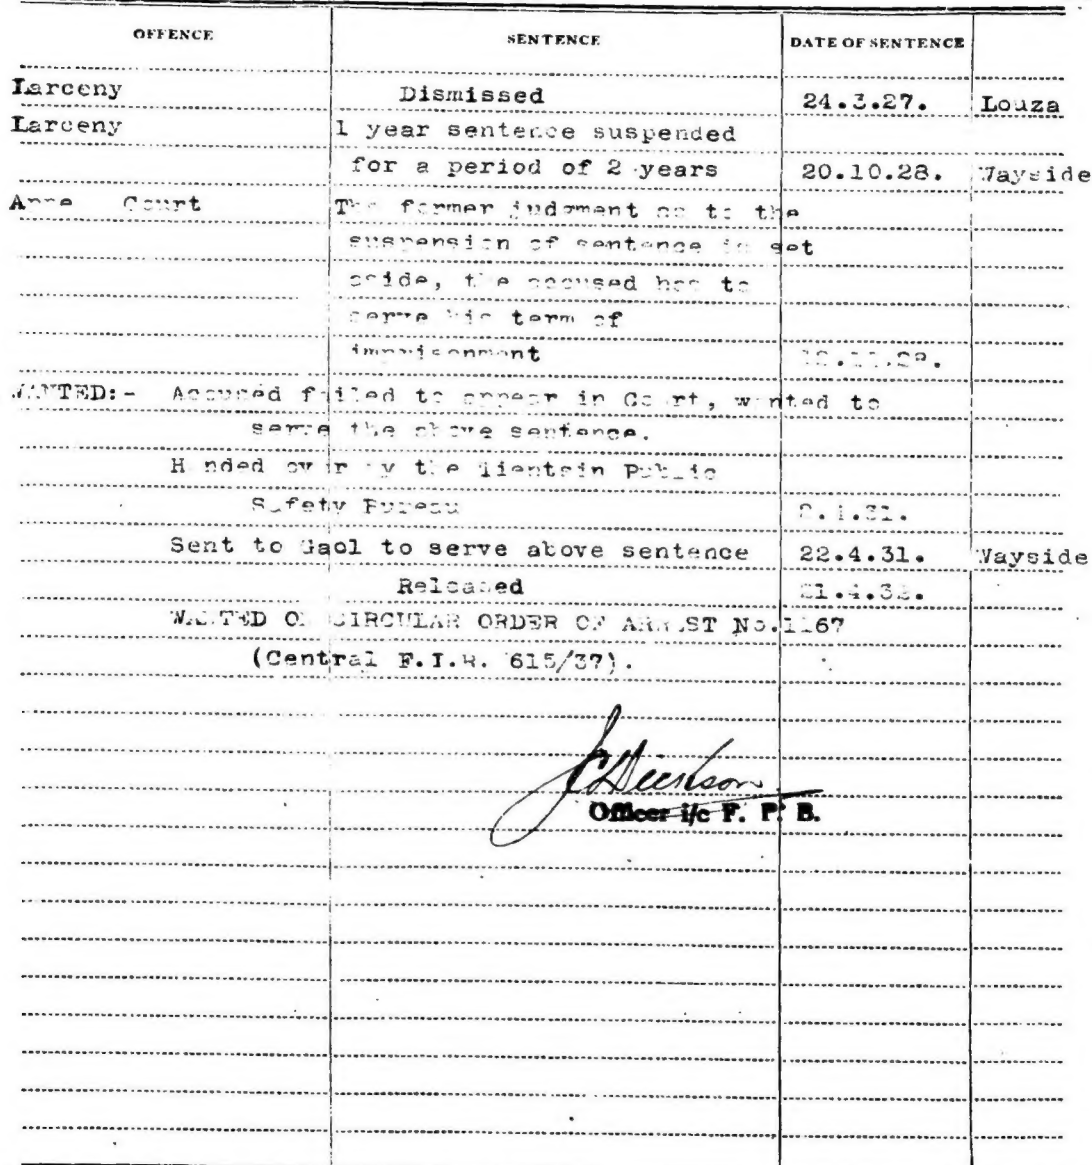 OFFENCE SENTENCE DATE OF SENTENCE
Larceny Dismissed 24.3.27. Louza
Larceny 1 year sentence suspended
for a period of 2 years 20.10.28. Wayside
Court The former judgment as to the
suspension of sentence is set
aside, the accused has to
serve his term of
imprisonment
WANTED:- Accused failed to appear in Court, wanted to
serve the above sentence.
Handed over by the Tientsin Public
Safety Bureau
Sent to Gaol to serve above sentence 22.4.31. Wayside
Released
WANTED ON CIRCULAR ORDER OF ARREST No.1167
(Central F.I.R. 615/37).
Officer i/c F. P. B.